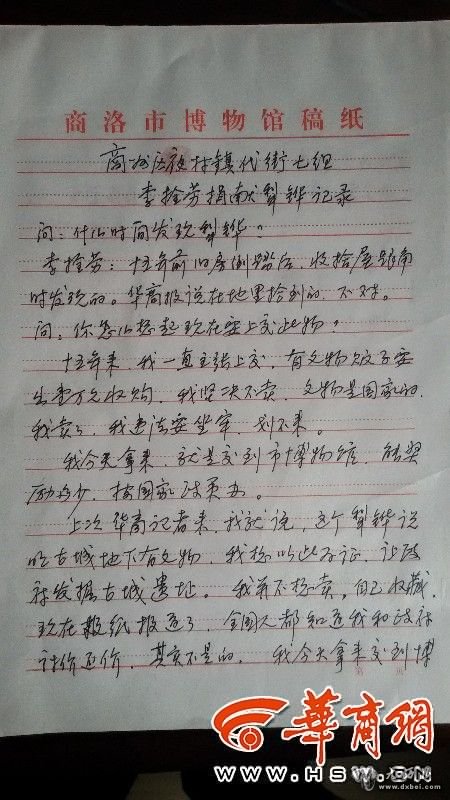 商洛市博物馆稿纸
商州区夜村镇代街七组
李拴劳捐献犁铧记录
问：什么时间发现犁铧？
李拴劳：十五年前旧房倒塌后，收拾屋
时发现的。华商报说在地里拾到的，不对。
问：你怎么想起现在要上交此物？
十五年来，我一直主张上交，有文物贩子要
出壹万元收购，我坚决不卖，文物是国家的，
我卖了，我违法要坐牢，划不来。
我今天拿来，就是交到市博物馆，能奖
励多少，按国家政策办。
上次华商记者来，我就说，这个犁铧说
明古城地下有文物，我想以此为证，让政
府发掘古城遗址。我并不想卖，自己收藏，
现在报纸报道了，全国人都知道我和政府
讨价还价，其实不是的，我今天拿来交到博
第 页
华商网
WWW.HSW.CN
www.dxbei.com